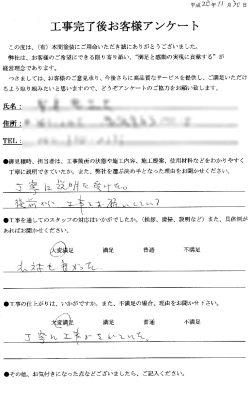 平成20年11月30日
工事完了後お客様アンケート
この度は、(有)本間塗装にご用命いただき誠にありがとうございました。
弊社は、お客様のご希望にできる限り寄り添い、"満足と感動の実現に貢献する"が
経営理念であります。
つきましては、お客様のご意見承り、今後さらに高品質なサービスを提供し、ご満足いただけ
るよう取り組みたいと思いますので、どうぞアンケートのご協力をお願い致します。
氏名:
住所:
TEL:
●御見積時、担当者は、工事箇所の状態や施工内容、施工提案、使用材料などをわかりやすく
丁寧に説明できていたか。また、弊社を選ぶ決め手となった理由をお聞かせください。
丁寧に説明を受けた。
●工事を通してのスタッフの対応はいかがでしたか。(挨拶、清掃、説明など)また、具体例が
あればお聞かせください。
大変満足 満足 普通 不満足
●工事の仕上がりは、いかがですか。また、不満足の場合、理由をお聞かせ下さい。
大変満足 満足 普通 不満足
丁寧に工事
●その他、お気付きになった点などございましたら、ご記入ください。